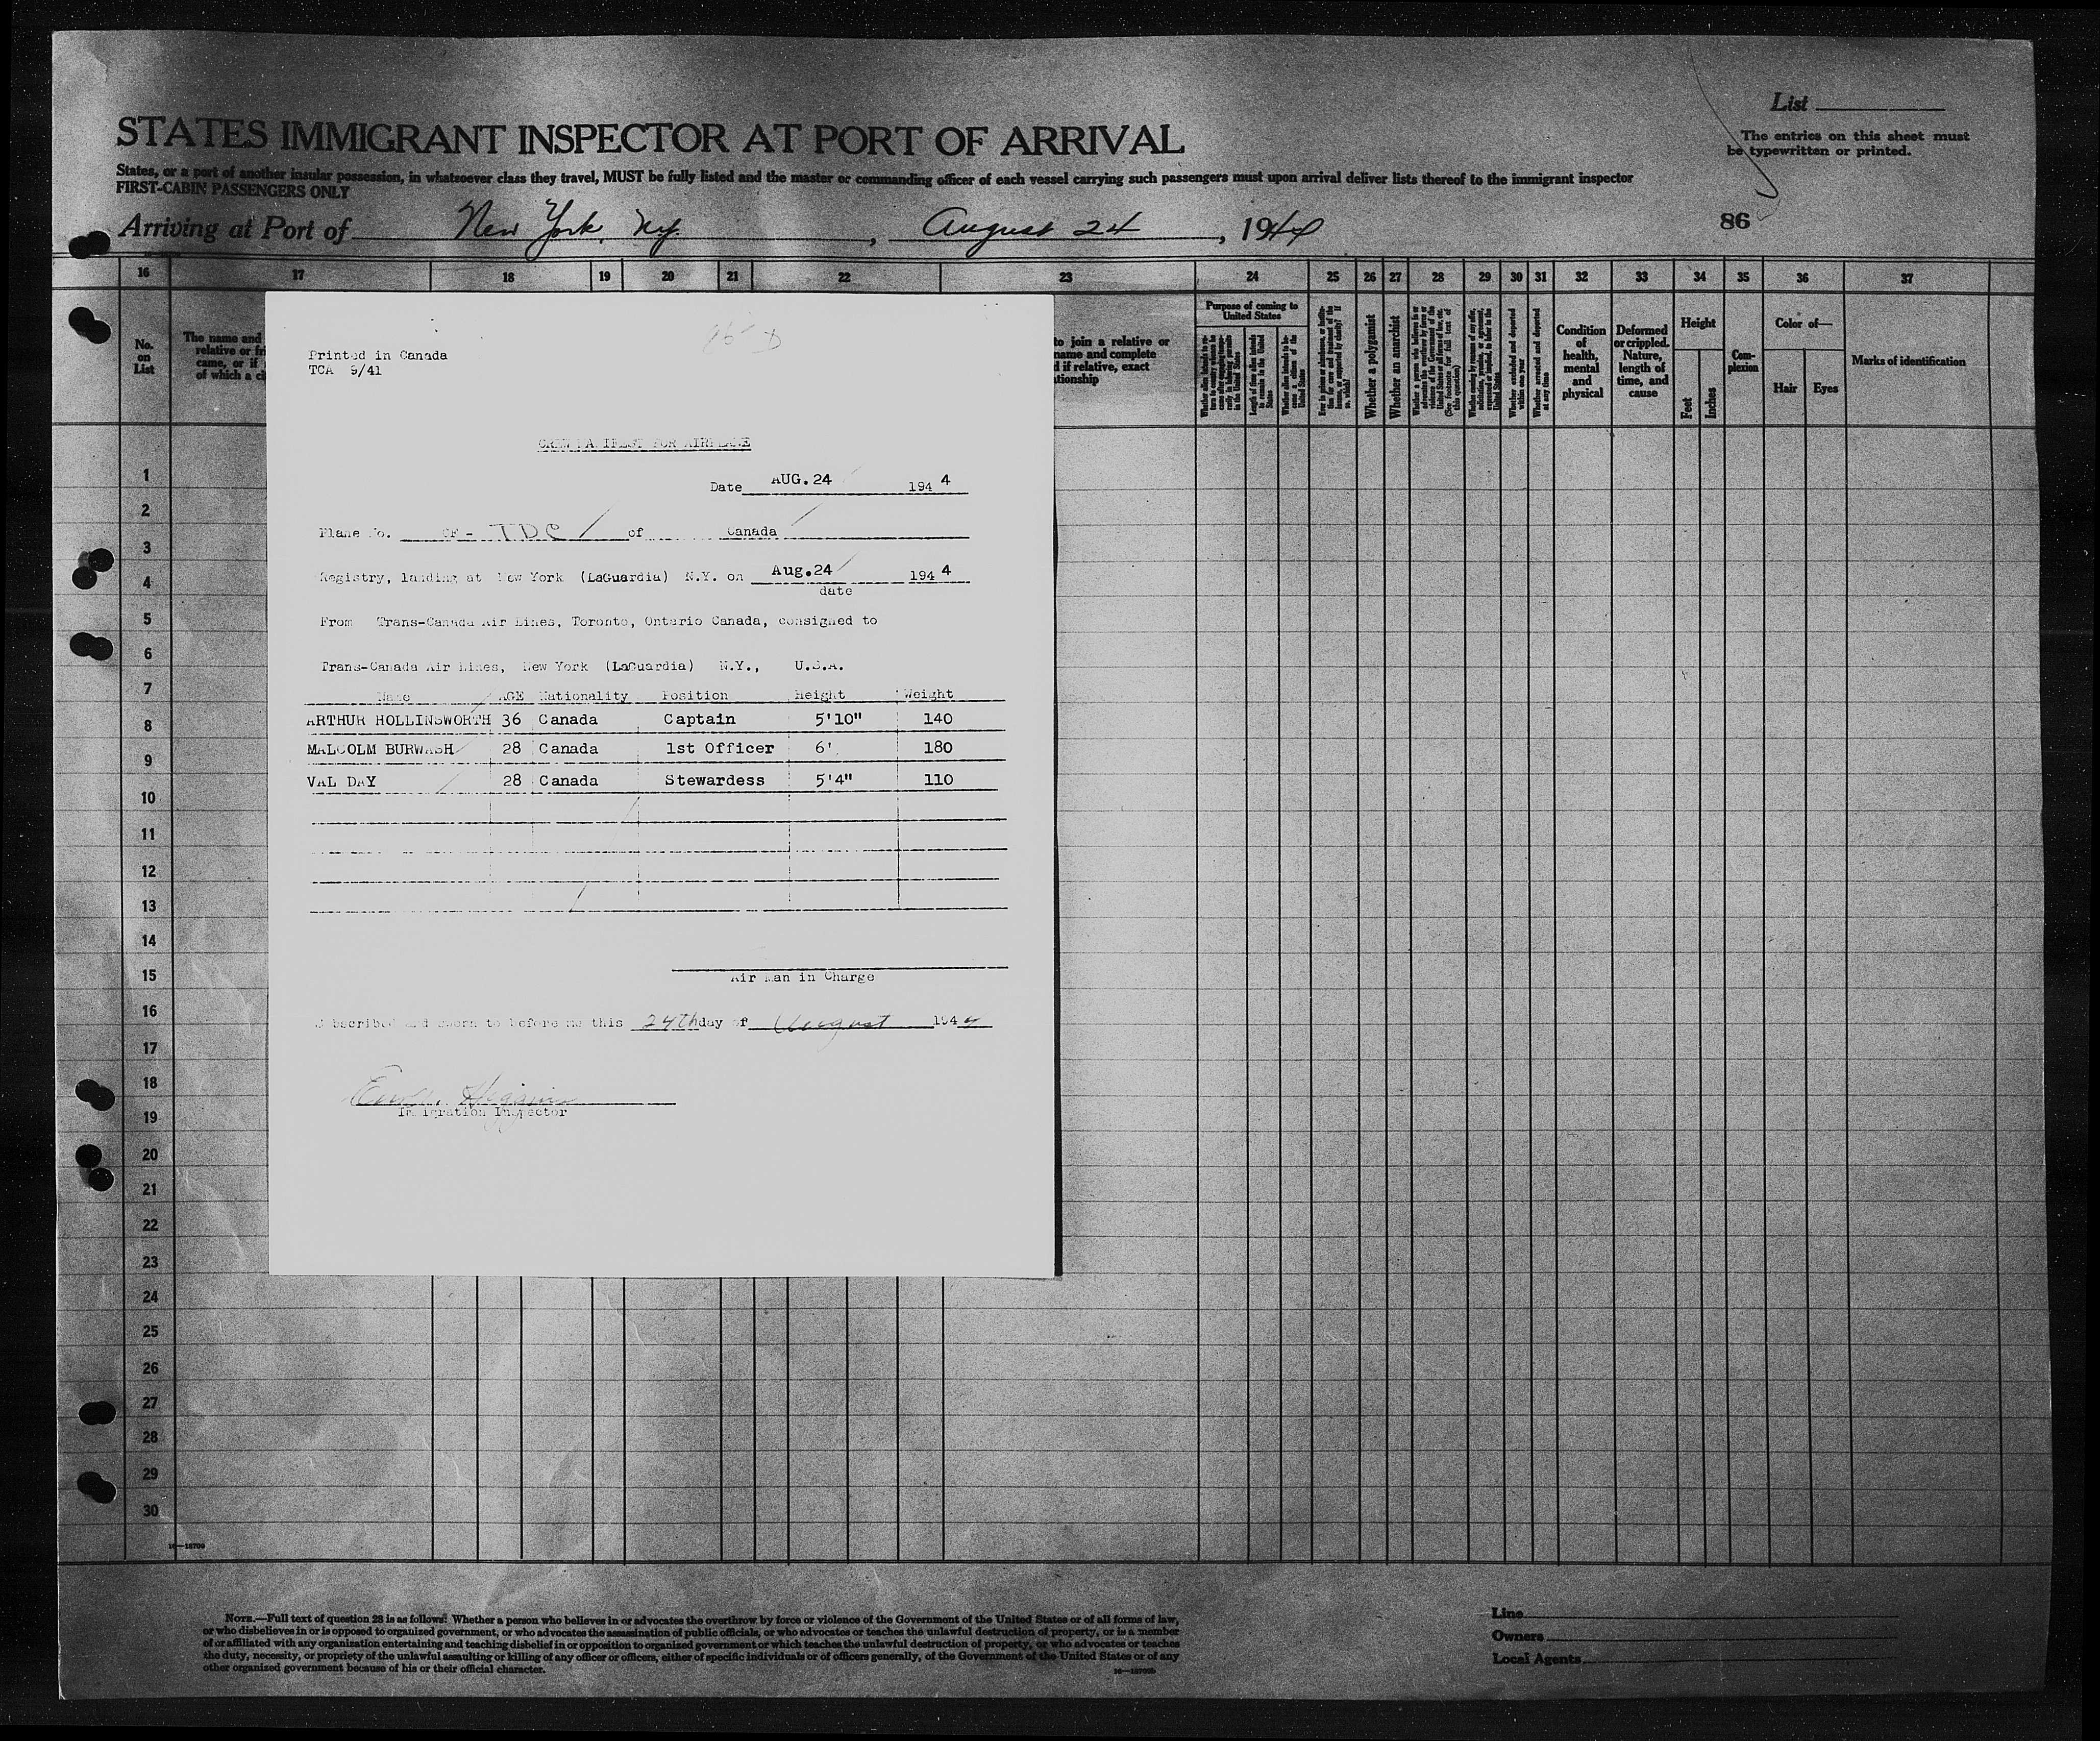 List
STATES IMMIGRANT INSPECTOR AT PORT OF ARRIVAL
The entries on this sheet must
be typewritten or printed.
States, or a port of another insular possession, in whatsoever class they travel, MUST be fully listed and the master or commanding officer of each vessel carrying such passengers must upon arrival deliver lists thereof to the immigrant inspector
FIRST-CABIN PASSENGERS ONLY
86
Arriving at Port of New York, Ny. , August 24 , 1944
16 17 18 19 20 21 22 23 24 25 26 27 28 29 30 31 32 33 34 35 36 37
No.
on
List
The name and
relative or fri
came, or if
of which a ci
to join a relative or
name and complete
d if relative, exact
tionship
Purpose of coming to
United States
Whether a polygamist
Whether an anarchist
Whether excluded and deported
within one year
Whether arrested and deported
at any time
Condition
of
health,
mental
and
physical
Deformed
or crippled.
Nature,
length of
time, and
cause
Height
Feet
Inches
Com-
plexion
Color of—
Hair
Eyes
Marks of identification
Printed in Canada
TCA 9/41
CREW MANIFEST FOR AIRPLANE
Date AUG.24 194 4
Plane No. CF- TDC of Canada
Registry, landing at New York (LaGuardia) N.Y. on Aug.24 194 4
date
From Trans-Canada Air Lines, Toronto, Ontario Canada, consigned to
Trans-Canada Air Lines, New York (LaGuardia) N.Y., U.S.A.
Name AGE Nationality Position Height Weight
ARTHUR HOLLINSWORTH 36 Canada Captain 5'10" 140
MALCOLM BURWASH 28 Canada 1st Officer 6' 180
VAL DAY 28 Canada Stewardess 5'4" 110
Air Man in Charge
Subscribed and sworn to before me this 24th day of August 1944
Immigration Inspector
1
2
3
4
5
6
7
8
9
10
11
12
13
14
15
16
17
18
19
20
21
22
23
24
25
26
27
28
29
30
16—18709
NOTE.—Full text of question 28 is as follows: Whether a person who believes in or advocates the overthrow by force or violence of the Government of the United States or of all forms of law,
or who disbelieves in or is opposed to organized government, or who advocates the assassination of public officials, or who advocates or teaches the unlawful destruction of property, or is a member
of or affiliated with any organization entertaining and teaching disbelief in or opposition to organized government or which teaches the unlawful destruction of property, or who advocates or teaches
the duty, necessity, or propriety of the unlawful assaulting or killing of any officer or officers, either of specific individuals or of officers generally, of the Government of the United States or of any
other organized government because of his or their official character.
Line
Owners
Local Agents